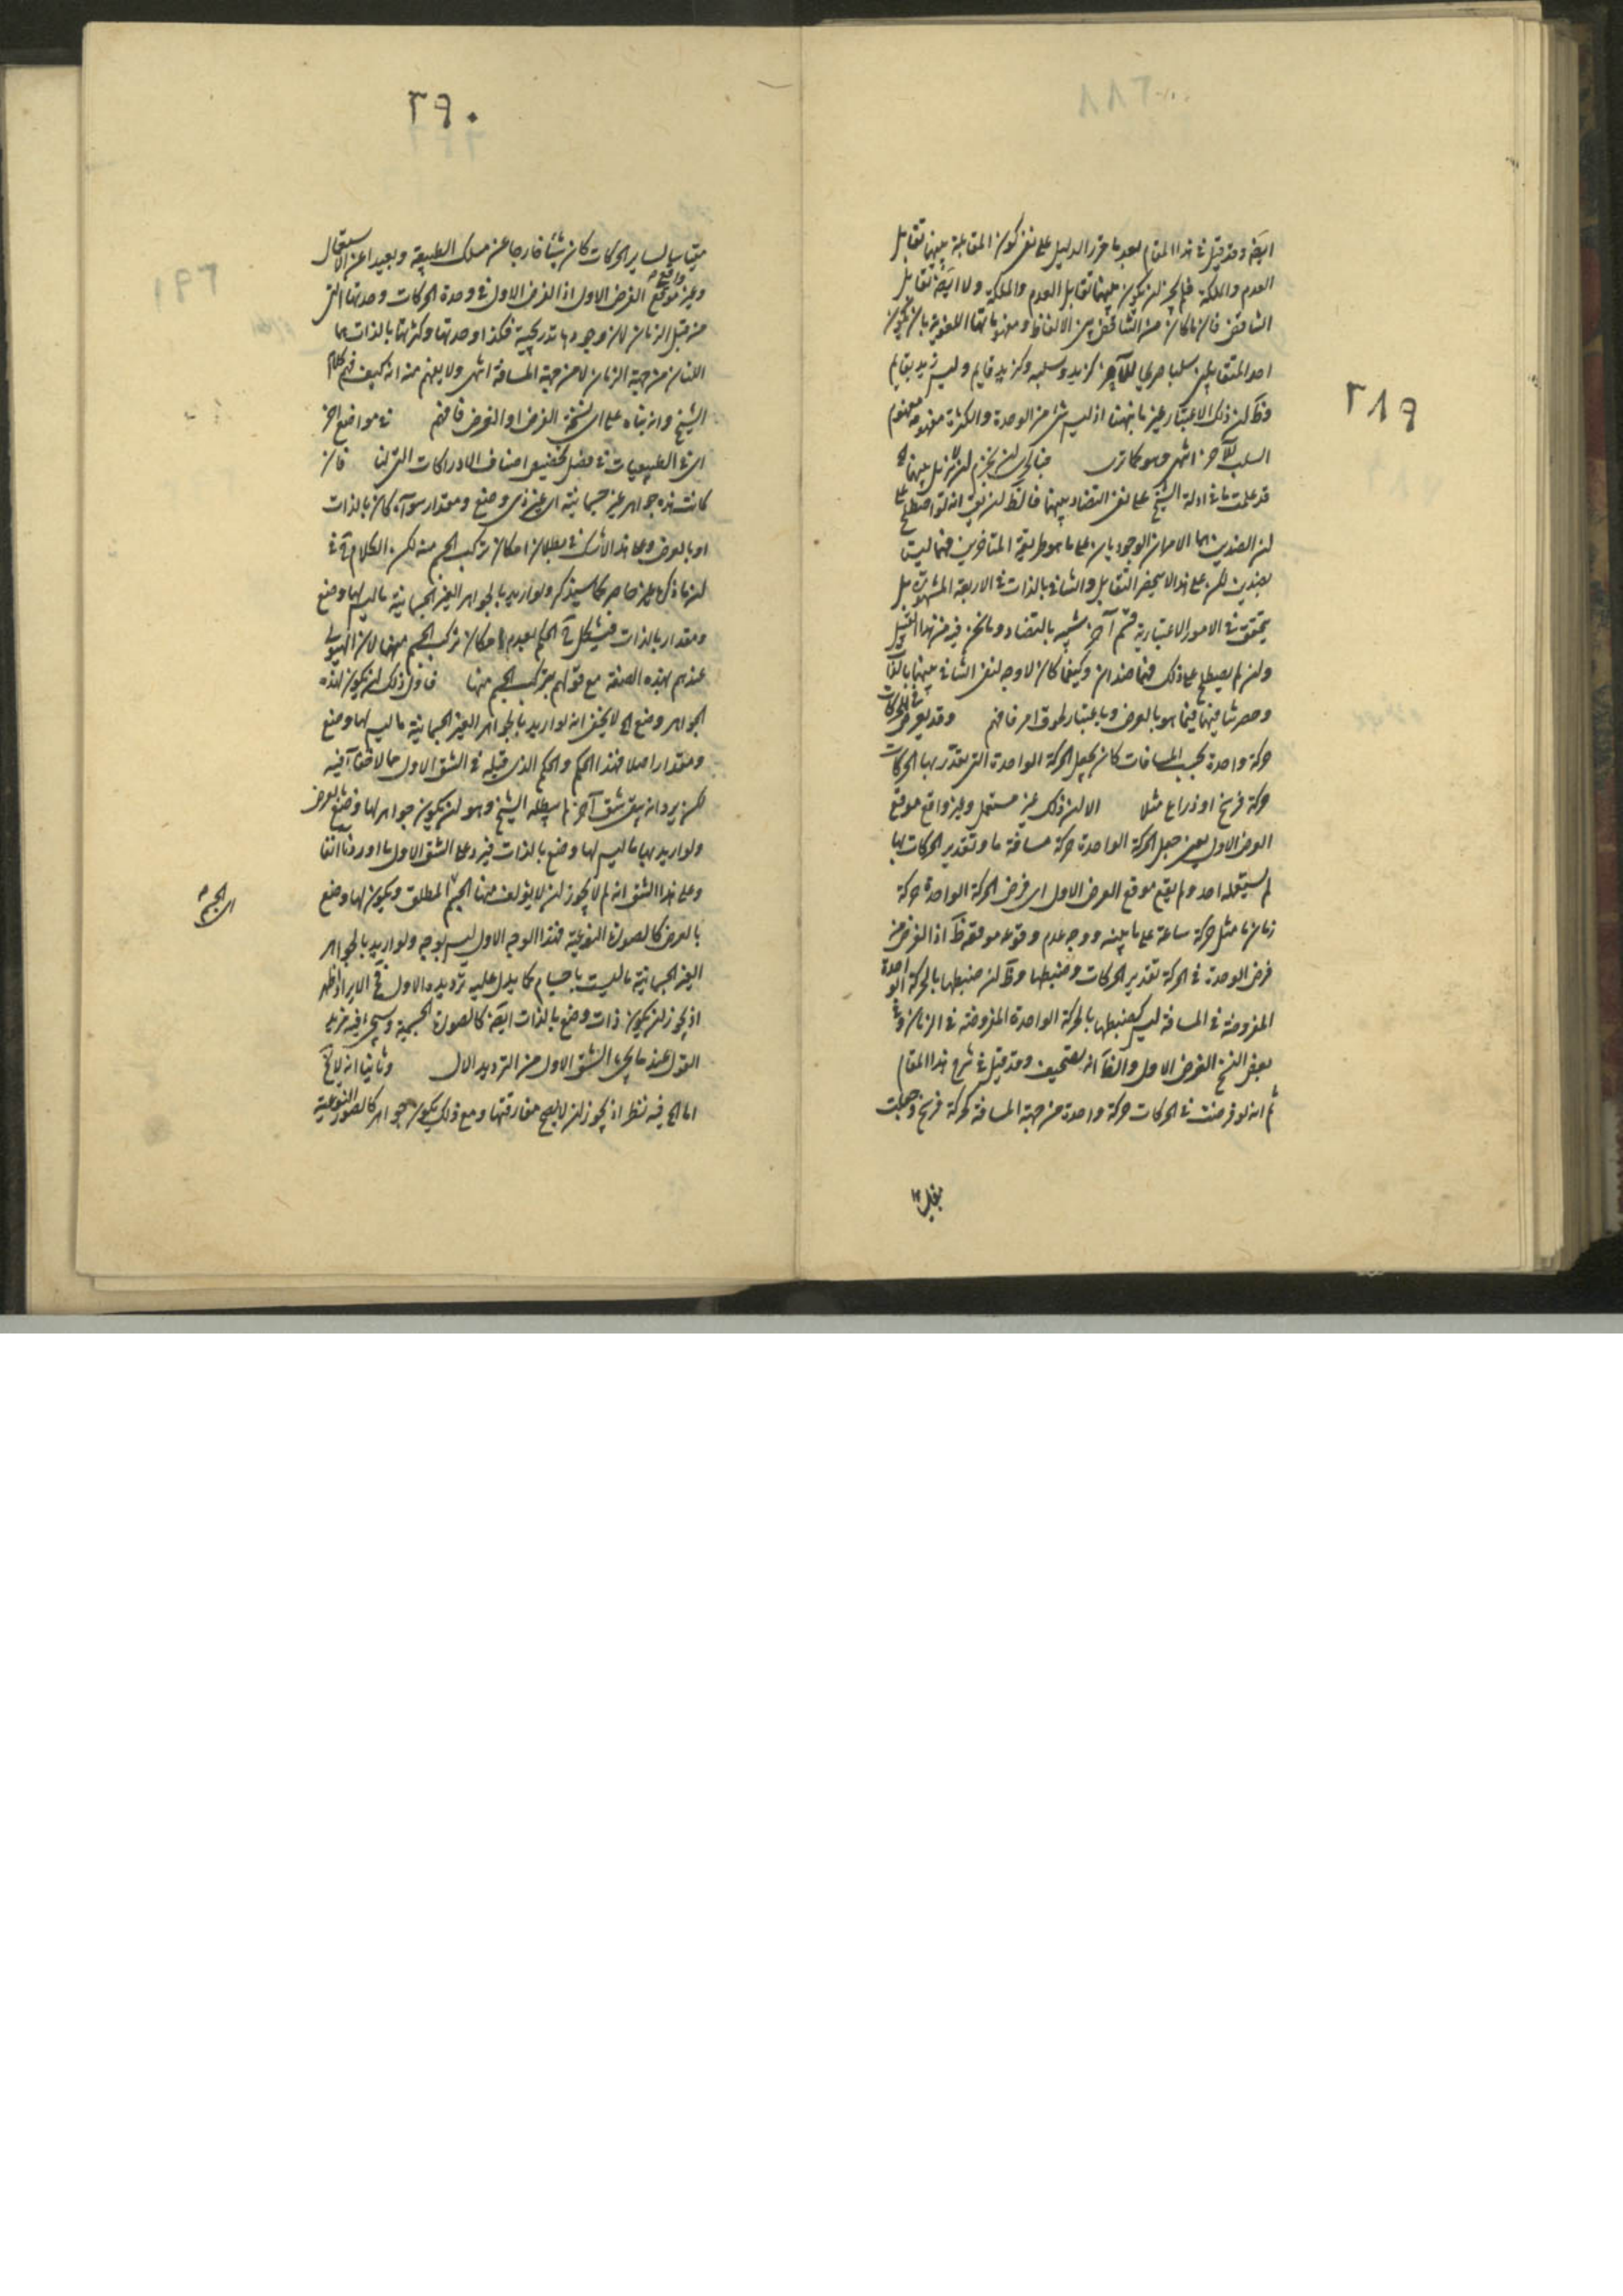 ٢٨٩
ايضا وقد قيل في هذا المقام بعد ما حرر الدليل على نفي كون المقابلة بينهما تقابل
العدم والملكة فلم يجز ان يكون بينهما تقابل العدم والملكة ولا ايضا تقابل
التناقض فان ما كان من التناقض بين الالفاظ ومفهوماتها اللغوية بان يكون
احد المتقابلين سلبا صريحا للآخر كزيد وسلبه وكزيد قايم وليس زيد بقايم
وظ ان ذلك الاعتبار غير ما بينهما اذ ليس شئ من الوحدة والكثرة مفهومه مفهوم
السلب للآخر انتهى وهو كما ترى
قد علمت ما في ادلة الشيخ على نفي التضاد بينهما فالظ ان يق انه لو اصطلح على
ان الضدين هما الامران الوجوديان على ما هو طريقة المتاخرين فهما ليسا
بضدين لكن على هذا لا ينحصر التقابل والتنافي بالذات في الاربعة المشهورة بل
يتحقق في الامور الاعتبارية قسم آخر شبيه بالتضاد وما نحن فيه من هذا القبيل
وان لم يصطلح على ذلك فهما ضدان وكيفما كان لا وجه لنفي التنافي بينهما بالذات
وحصر تنافيهما فيما هو بالعرض وباعتبار لحوق امر فافهم وقد يعرض في الحركات
حركة واحدة بحسب المسافات كان يجعل الحركة الواحدة التي يقدر بها الحركات
حركة فرسخ او ذراع مثلا الا ان ذلك غير مستعمل وغير واقع موقع
العرض الاول يعني جعل الحركة الواحدة حركة مسافة ما وتقدير الحركات بها
لم يستعمله احد ولم يقع موقع العرض الاول اي فرض الحركة الواحدة حركة
زمان ما مثل حركة ساعة على ما بينه ووجه عدم وقوعه موقعه ظ اذ الغرض من
فرض الوحدة في الحركة تقدير الحركات وضبطها وظ ان ضبطها بالحركة الواحدة
المفروضة في المسافة ليس كضبطها بالحركة الواحدة المفروضة في الزمان وفي
بعض النسخ الغرض الاول والظ انه تصحيف وقد قيل في شرح هذا المقام
ثم انه لو فرضت في الحركات حركة واحدة من جهة المسافة كحركة فرسخ وجعلت
٢٩٠
مقياسا لساير الحركات كان شيئا خارجا عن مسلك الطبيعة وبعيدا عن الاستعمال
وغير واقع موقع الغرض الاول اذ الغرض الاول في وحدة الحركات وحدتها التي
من قبل الزمان لان وجودها تدريجية فكذا وحدتها وكثرتها بالذات هما
اللتان من جهة الزمان لا من جهة المسافة انتهى ولا يفهم منه انه كيف فهم كلام
الشيخ وان بناه على اى نسخة العرض او الغرض فافهم في مواضع اخر
اى في الطبيعيات في فصل اصناف الادراكات التي لنا فان
كانت هذه جواهر غير جسمانية اى غير ذى وضع ومقدار سواء كان بالذات
او بالعرض وعلى هذا لا شك في بطلان امكان تركب الجسم منه لكن الكلام في
ان ما ذكره غير حاصر كما سيذكر ولو اريد بالجواهر الغير الجسمانية ما ليس لها وضع
ومقدار بالذات فيشكل الحكم بعدم امكان تركب الجسم منها لان الهيولى
عندهم بهذه الصفة مع قولهم بتركب الجسم منها فاول ذلك ان يكون لهذه
الجواهر وضع الخ لا يخفى انه لو اريد بالجواهر الغير الجسمانية ما ليس لها وضع
ومقدار اصلا فهذا الحكم والحكم الذى قبله في الشق الاول مما لا خفاء فيه
لكن يرد انه بقي شق آخر لم يبطله الشيخ وهو ان يكون جواهر لها وضع بالعرض
ولو اريد بها ما ليس لها وضع بالذات فيرد على الشق الاول ما اوردنا آنفا
وعلى هذا الشق انه لم لا يجوز ان لا يؤلف منها الجسم المطلق ويكون لها وضع
اى الجسم
بالعرض كالصورة النوعية فهذا الوجه الاول ليس بوجه ولو اريد بالجواهر
الغير الجسمانية ما ليست باجسام كما يدل عليه ترديده الاول الايراد اظهر
اذ يجوز ان يكون ذات وضع بالذات ايضا كالصورة الجسمية وسيجئ فيه مزيد
القول عند ما الشق الاول من الترديد الاول وثانيا انه لا يخ
اما الخ فيه نظر اذ يجوز ان لا يصح مفارقتها ومع ذلك يكون جواهر كالصور النوعية